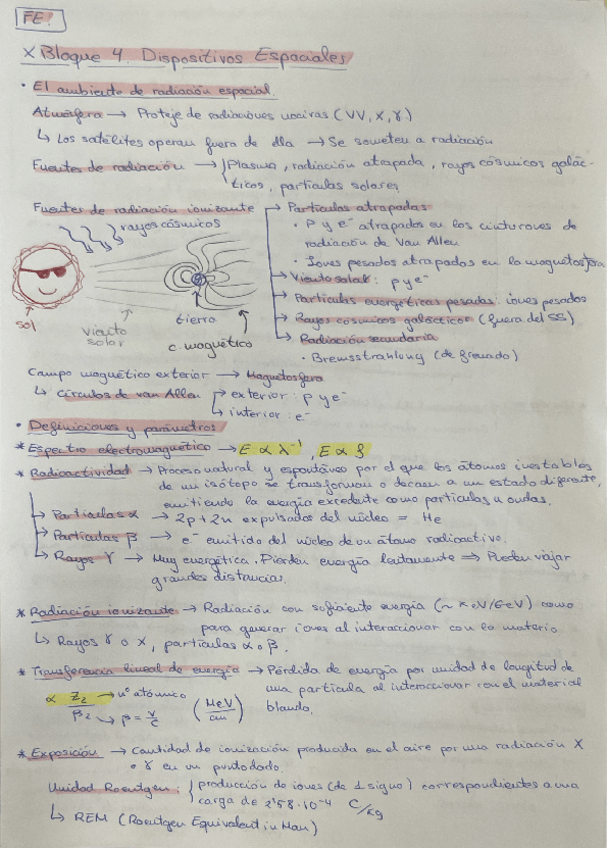 FE!
X Bloque 4. Dispositivos Espaciales
• El ambiente de radiación espacial
Atmósfera → Proteje de radiaciones nocivas (UV, X, γ)
↳ Los satélites operan fuera de ella → Se someten a radiación
Fuentes de radiación → Plasma, radiación atrapada, rayos cósmicos galác-
ticos, partículas solares
Fuentes de radiación ionizante → Partículas atrapadas
rayos cósmicos
• P y e⁻ atrapados en los cinturones de
radiación de Van Allen
• Iones pesados atrapados en la magnetosfera
→ Viento solar: p y e⁻
→ Partículas energéticas pesadas: iones pesados
→ Rayos cósmicos galácticos (fuera del SS)
→ Radiación secundaria
• Bremsstrahlung (de frenado)
sol
viento
solar
tierra
c. magnético
Campo magnético exterior → Magnetosfera
↳ Círculos de van Allen → exterior: p y e⁻
↳ interior: e⁻
• Definiciones y parámetros
* Espectro electromagnético → E ∝ λ⁻¹, E ∝ f
* Radioactividad → Proceso natural y espontáneo por el que los átomos inestables
de un isótopo se transforman o decaen a un estado diferente,
emitiendo la energía excedente como partículas u ondas.
→ Partículas α → 2p + 2n expulsados del núcleo = He
→ Partículas β → e⁻ emitido del núcleo de un átomo radioactivo.
→ Rayos γ → Muy energética. Pierden energía lentamente ⇒ Pueden viajar
grandes distancias.
* Radiación ionizante → Radiación con suficiente energía (~ KeV/GeV) como
para generar iones al interaccionar con la materia
↳ Rayos γ o X, partículas α o β.
* Transferencia lineal de energía → Pérdida de energía por unidad de longitud de
una partícula al interaccionar con el material
blando.
∝ Z2/β2 → nº atómico
↳ β = v/c
(MeV/cm)
* Exposición → Cantidad de ionización producida en el aire por una radiación X
o γ en un punto dado.
Unidad Roentgen: producción de iones (de 1 signo) correspondientes a una
carga de 2'58·10⁻⁴ C/Kg
↳ REM (Roentgen Equivalent in Man)